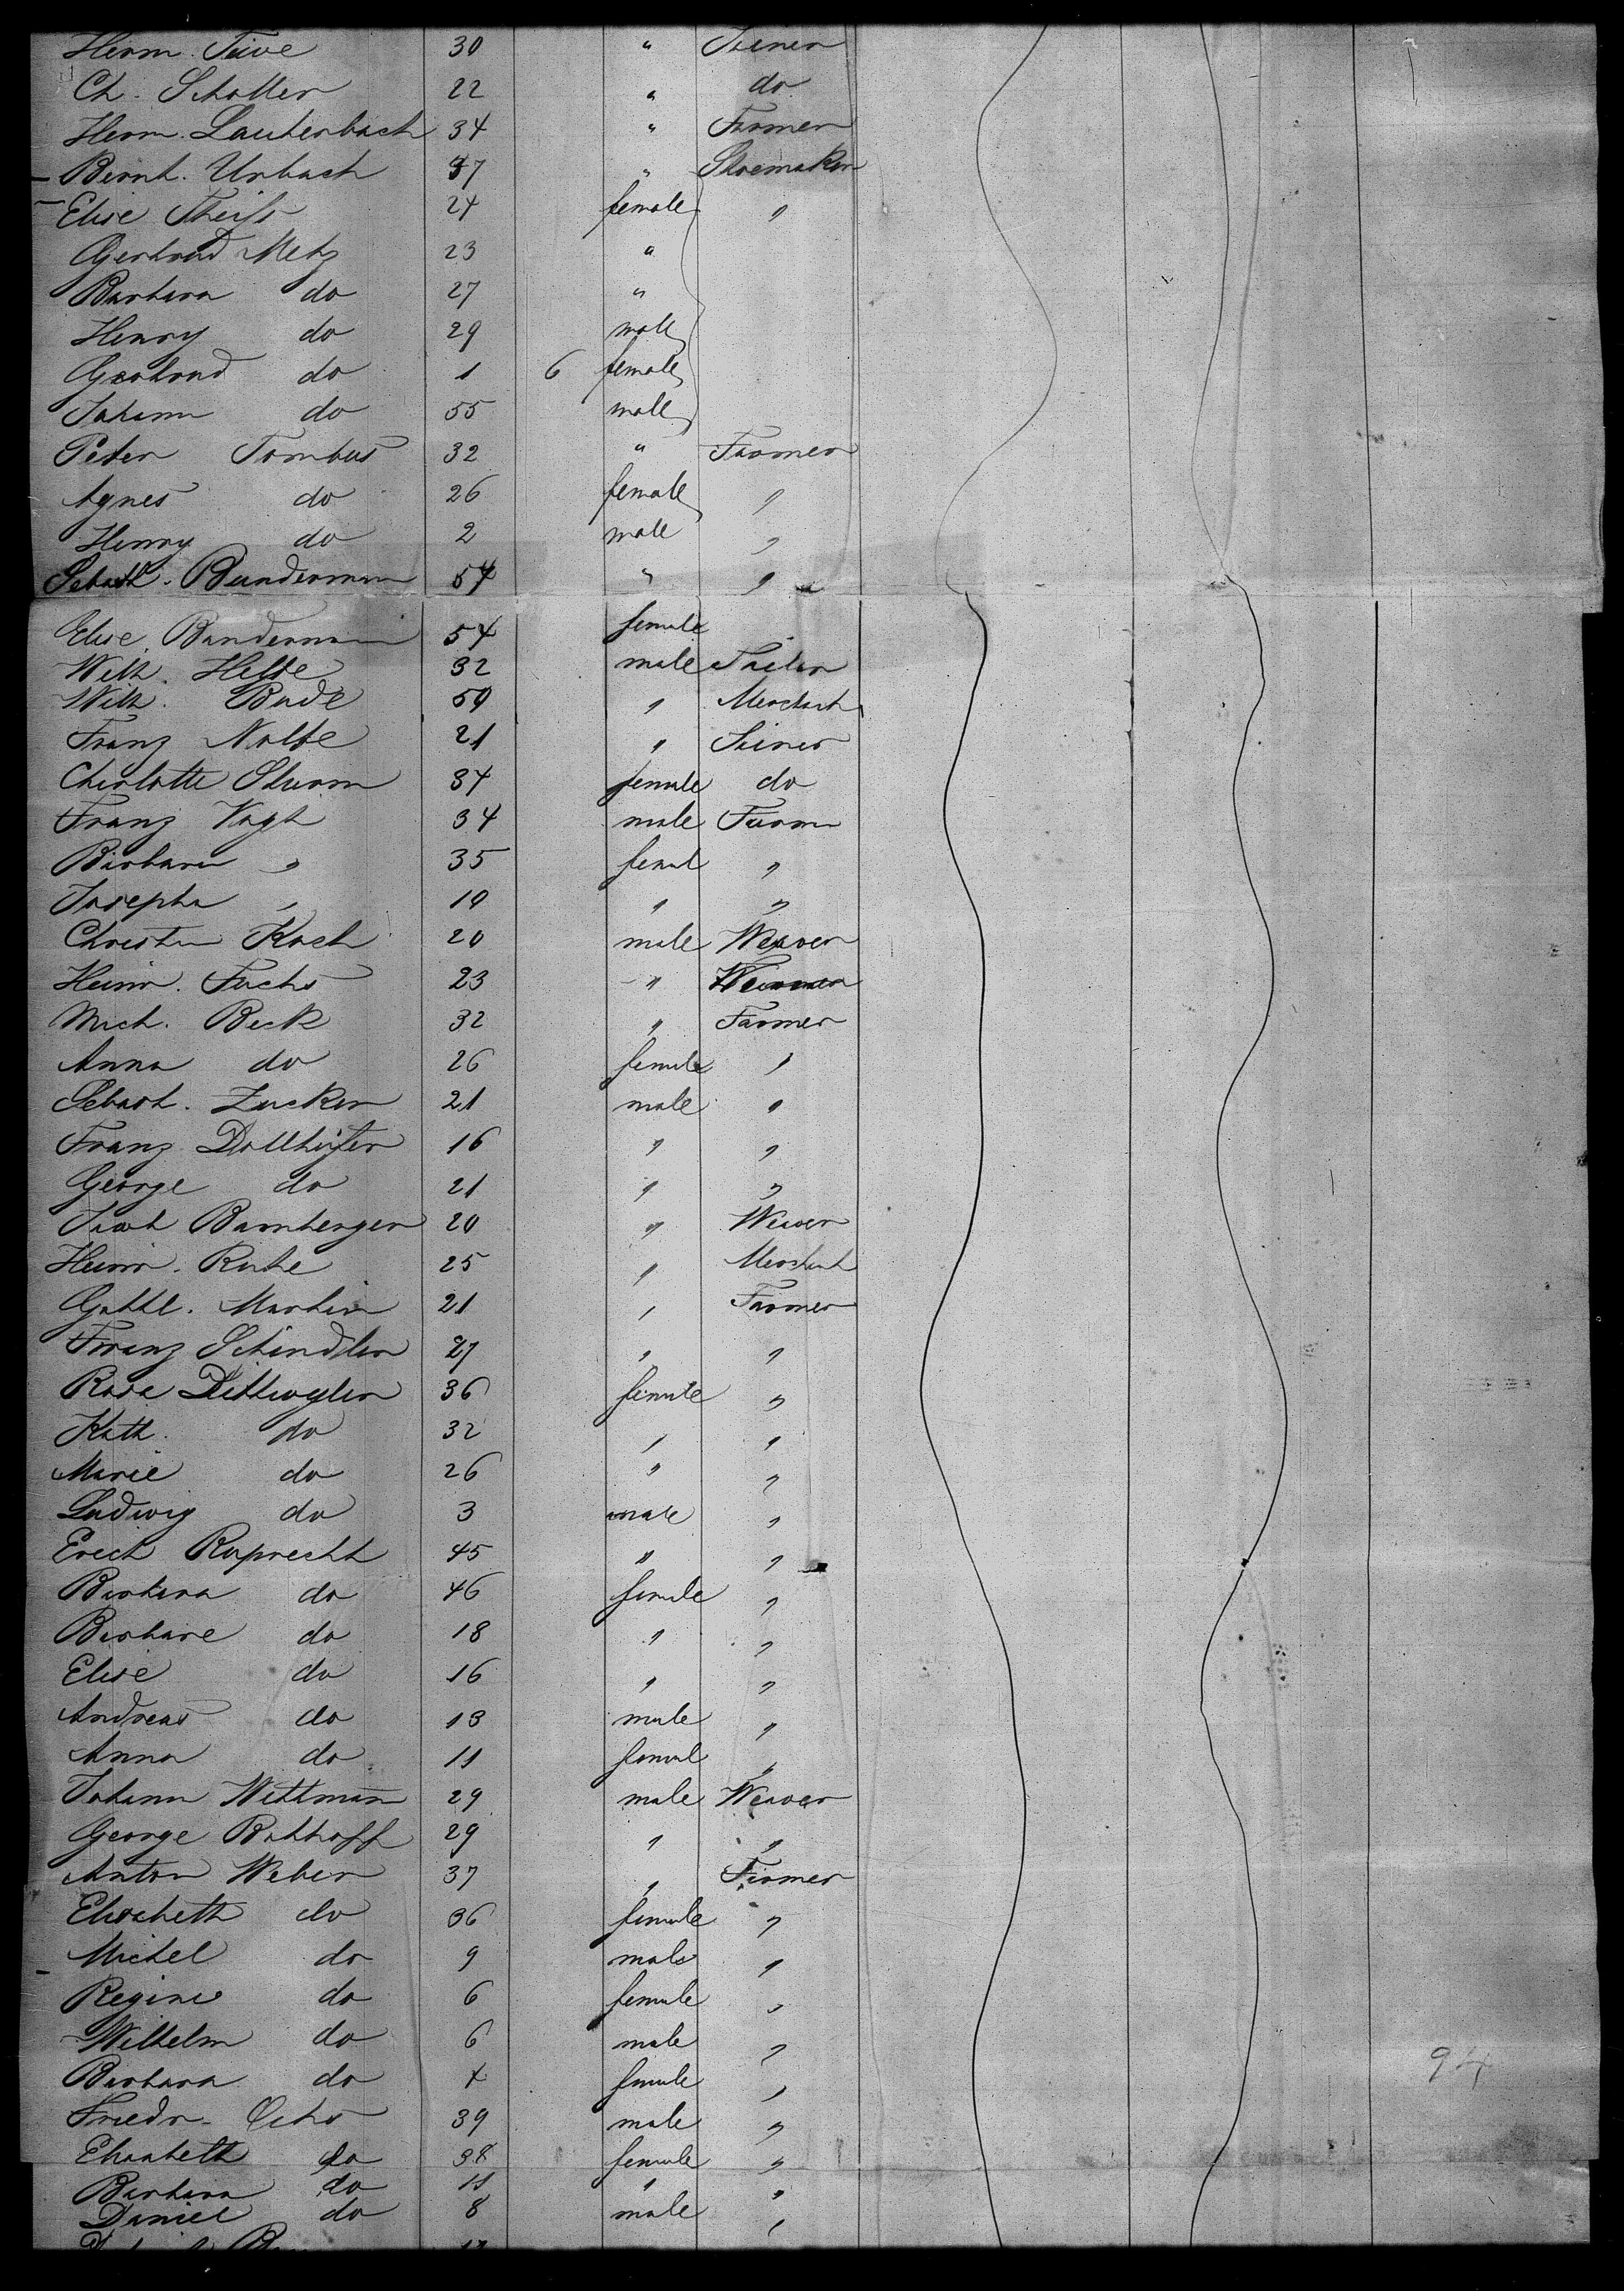 Herm. Tuve 30 " Joiner
Ch. Schotter 22 " do
Herm. Lauterbach 34 " Farmer
Bernh. Urbach 37 " Shoemaker
Elise Theiss 24 female "
Gertrud Metz 23 "
Barbara do 27 "
Henry do 29 male
Gertrud do 1 6 female
Johann do 55 male
Peter Tombus 32 " Farmer
Agnes do 26 female "
Henry do 2 male "
Sebast. Bandermann 54 " "
Elise Bandermann 54 female
Wilh. Helbe 32 male Tailor
Wilh. Bude 50 " Merchant
Franz Nolte 21 " Joiner
Charlotte Sturm 34 female do
Franz Vogt 34 male Farmer
Barbara " 35 femal "
Josepha " 10 " "
Christian Koch 20 male Weaver
Heinr. Fuchs 23 "
Mich. Beck 32 " Farmer
Anna do 26 female "
Sebast. Zucker 21 male "
Franz Dollhöfer 16 " "
George do 21 " "
Jacob Bamberger 20 " Weaver
Heinr. Ruhe 25 " Merchant
Gottl. Martin 21 " Farmer
Franz Schindler 27 " "
Rosa Dettwyler 36 female "
Kath. do 32 " "
Marie do 26 " "
Ludwig do 3 male "
Erich Ruprecht 45 " "
Barbara do 46 female "
Barbara do 18 " "
Elise do 16 " "
Andreas do 13 male "
Anna do 11 femal "
Johann Wittmann 29 male Weaver
George Rohhoff 29 " "
Anton Weber 37 " Farmer
Elisabeth do 36 female "
Michel do 9 male "
Regine do 6 female "
Wilhelm do 6 male "
Barbara do 4 female "
94
Friedr. Ochs 39 male "
Elisabeth do 38 female "
Barbara do 11 " "
Daniel do 8 male "